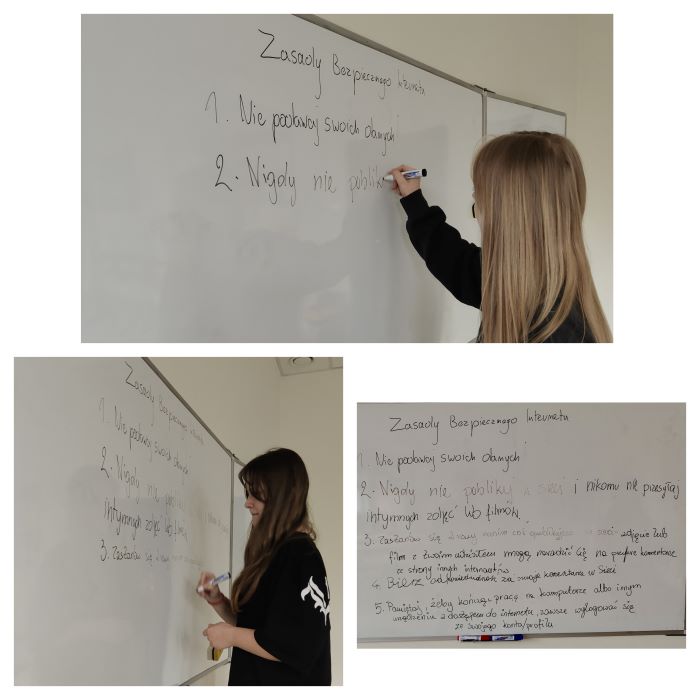 Zasady Bezpiecznego Internetu
1. Nie podawaj swoich danych
2. Nigdy nie publik
Zasady Bezpiecznego
1. Nie podawaj swoich danych
2. Nigdy nie
intymnych zdjęć lub filmów
3. Zastanów się
Zasady Bezpiecznego Internetu
1. Nie podawaj swoich danych
2. Nigdy nie publikuj w sieci i nikomu nie przesyłaj
intymnych zdjęć lub filmów.
3. Zastanów się zanim coś opublikujesz w sieci zdjęcie lub
film z Twoim udziałem mogą narazić Cię na przykre komentarze
ze strony innych internautów
4. Bierz odpowiedzialność za swoje komentarze w Sieci
5. Pamiętaj, żeby kończąc pracę na komputerze albo innym
urządzeniu z dostępem do internetu, zawsze wylogować się
ze swojego konta/profilu